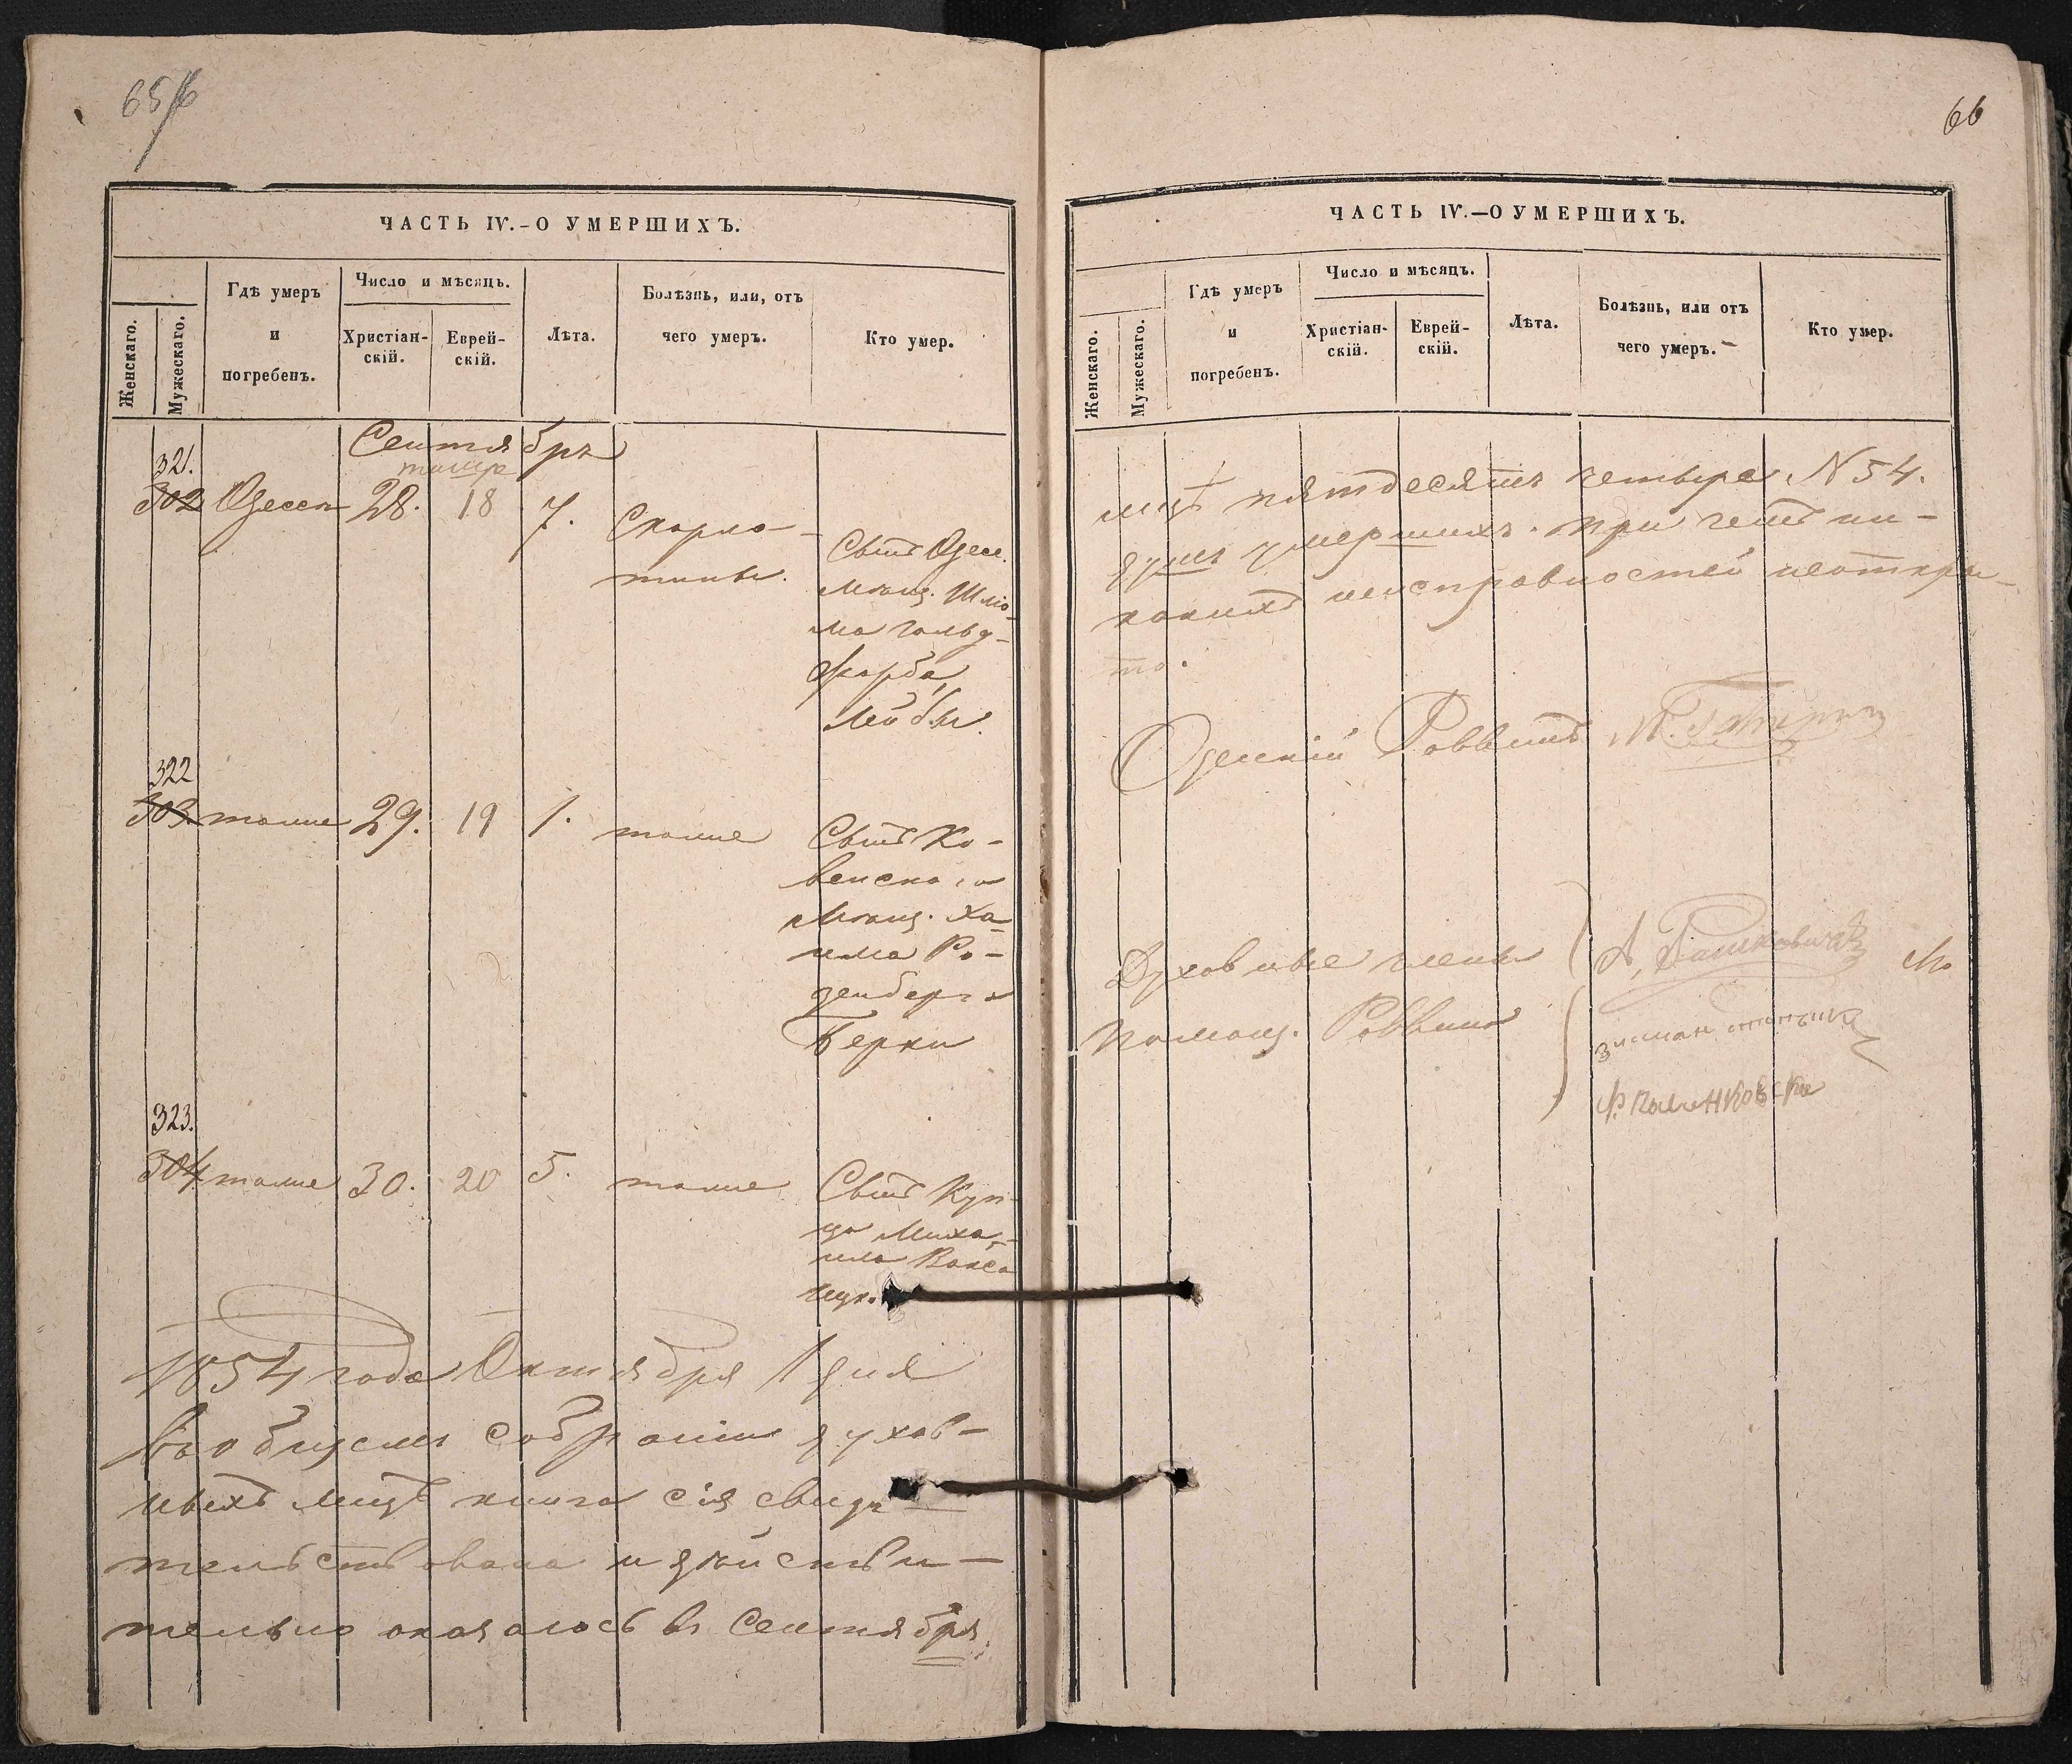 65/6
ЧАСТЬ IV.-О УМЕРШИХЪ.
Женскаго.
Мужескаго.
Гдѣ умеръ
и
погребенъ.
Число и мѣсяцъ.
Христіан-
скій.
Еврей-
скій.
Лѣта.
Болѣзнь, или, отъ
чего умеръ.
Кто умер.
Сентября
тишре
321.
302 Одесса 28. 18 7. Скарла-
тины.
Сынъ Одес.
Мѣщ. Шліо-
ма Гольд-
фарба,
Лейбы.
322
303. тоже 29. 19 1. тоже Сынъ Ко-
венского
Мѣщ. Ха-
има Ро-
зенберга
Берки
323.
304 тоже 30. 20 5. тоже Сынъ Куп-
ца Миха-
ила
1854 года Октября 1 дня
въ общемъ собраніи духов-
ныхъ лицъ книга сія свидѣ-
тельствована и дѣйстви-
тельно оказалось въ Сентябрѣ
66
ЧАСТЬ IV.—О УМЕРШИХЪ.
Женскаго.
Мужескаго.
Гдѣ умеръ
и
погребенъ.
Число и мѣсяцъ.
Христіан-
скій.
Еврей-
скій.
Лѣта.
Болѣзнь, или отъ
чего умеръ.
Кто умер.
мцѣ пятдесятъ четыре N 54.
душъ умершихъ. при чемъ ни-
какихъ неисправностей неоткры-
то.
Одесскій Раввинъ
Духовные члены
Помощ. Раввина